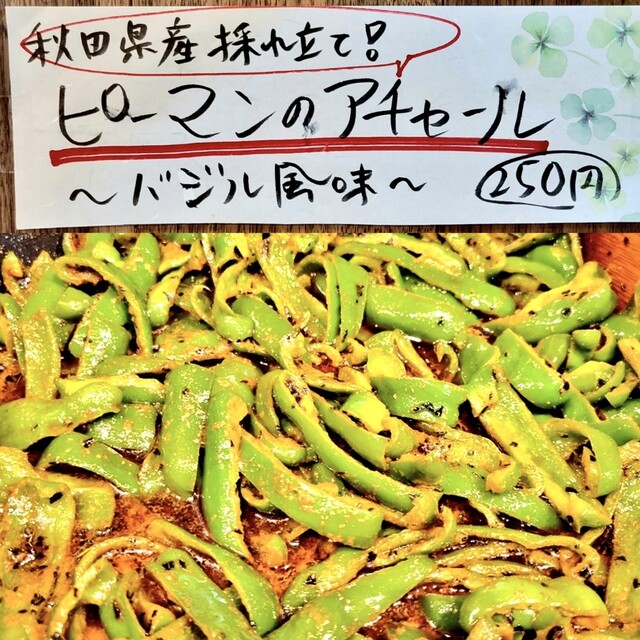 秋田県産 採れ立て!
ピーマンのアチャール
～バジル風味～
250円